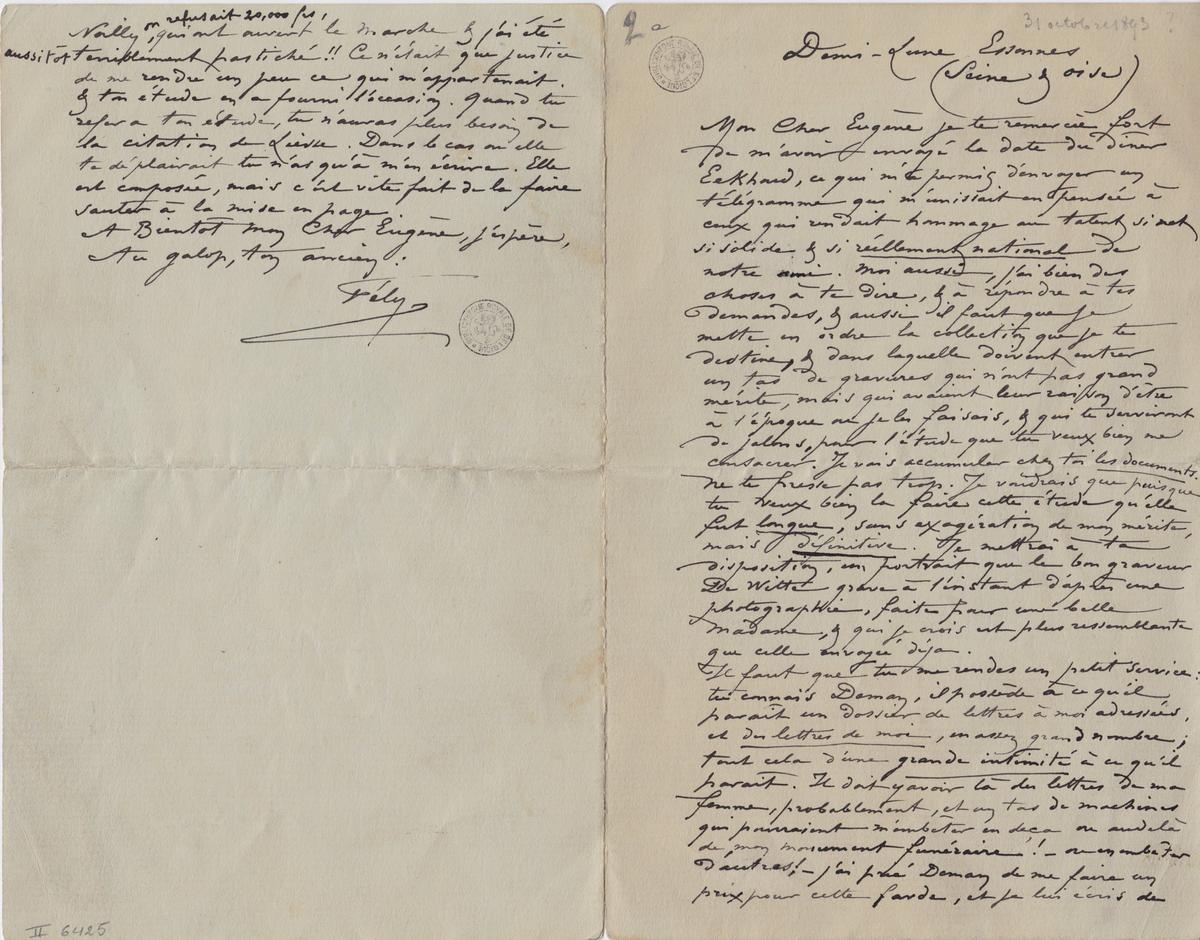 on refusait 20,000 frs,
Noilly, qui ont ouvert le marche & j'ai été
aussitôt terriblement pastiché !! Ce n'était que justice
de me rendre un peu ce qui m'appartenait.
& ton étude en a fourni l'occasion. Quand tu
refera ton étude, tu n'auras plus besoin de
la citation de Lièvre. Dans le cas ou elle
te déplairait tu n'as qu'à m'en écrire. Elle
est composée, mais c'est vite fait de la faire
sauter à la mise en page.
A Bientot mon Cher Eugène, j'espère,
Au galop, ton ancien :
Fély
II 6425
2 a
31 octobre 1893 ?
Demi-Lune Essonnes
(Seine & oise)
Mon Cher Eugène je te remercie fort
de m'avoir envoyé la date du diner
Eekhoud, ce qui m'a permis d'envoyer un
télégramme qui m'unissait en pensée à
ceux qui rendait hommage au talent si net
si solide & si réellement national de
notre ami. Moi aussi, j'ai bien des
choses à te dire, & à répondre à tes
demandes, & aussi il faut que je
mette en ordre la collection que je te
destine, & dans laquelle doivent entrer
un tas de gravures qui n'ont pas grand
mérite, mais qui avaient leur raison d'être
à l'époque ou je les faisais, & qui te serviront
de jalons, pour l'étude que tu veux bien me
consacrer. Je vais accumuler chez toi les documents.
Ne te presse pas trop. Je voudrais que puisque
tu veux bien la faire cette étude qu'elle
fut longue, sans exagération de mon mérite,
mais définitive. Je mettrai à ta
disposition, un portrait que le bon graveur
De Witte grave à l'instant d'après une
photographie, faite pour une belle
Madame, & qui je crois est plus ressemblante
que celle envoyée déja.
Il faut que tu me rendes un petit service :
tu connais Deman, il possède à ce qu'il
parait un dossier de lettres à moi adressées,
et des lettres de moi, en assez grand nombre ;
tout cela d'une grande intimité à ce qu'il
parait. Il doit y avoir là des lettres de ma
femme, probablement, et un tas de machines
qui pourraient m'embêter en deça ou audelà
de mon monument funéraire ! – ou en embêter
d'autres ! – j'ai prié Deman de me faire un
prix pour cette farde, et je lui écris de